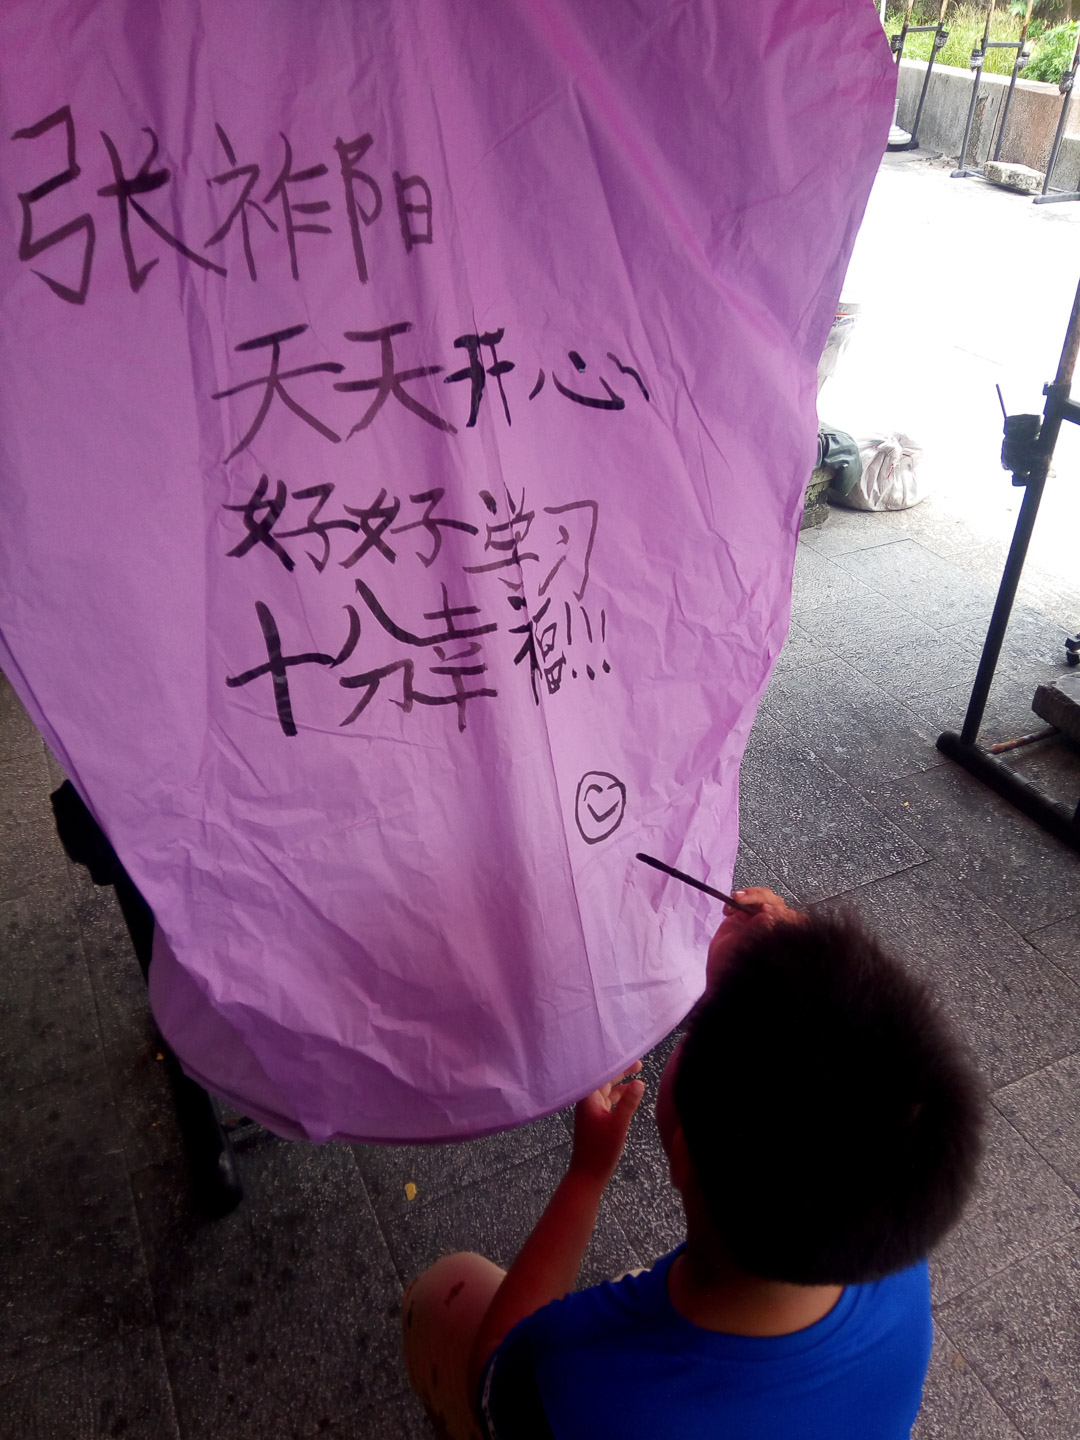 张祚阳
天天开心
好好学习
十分幸福!!!